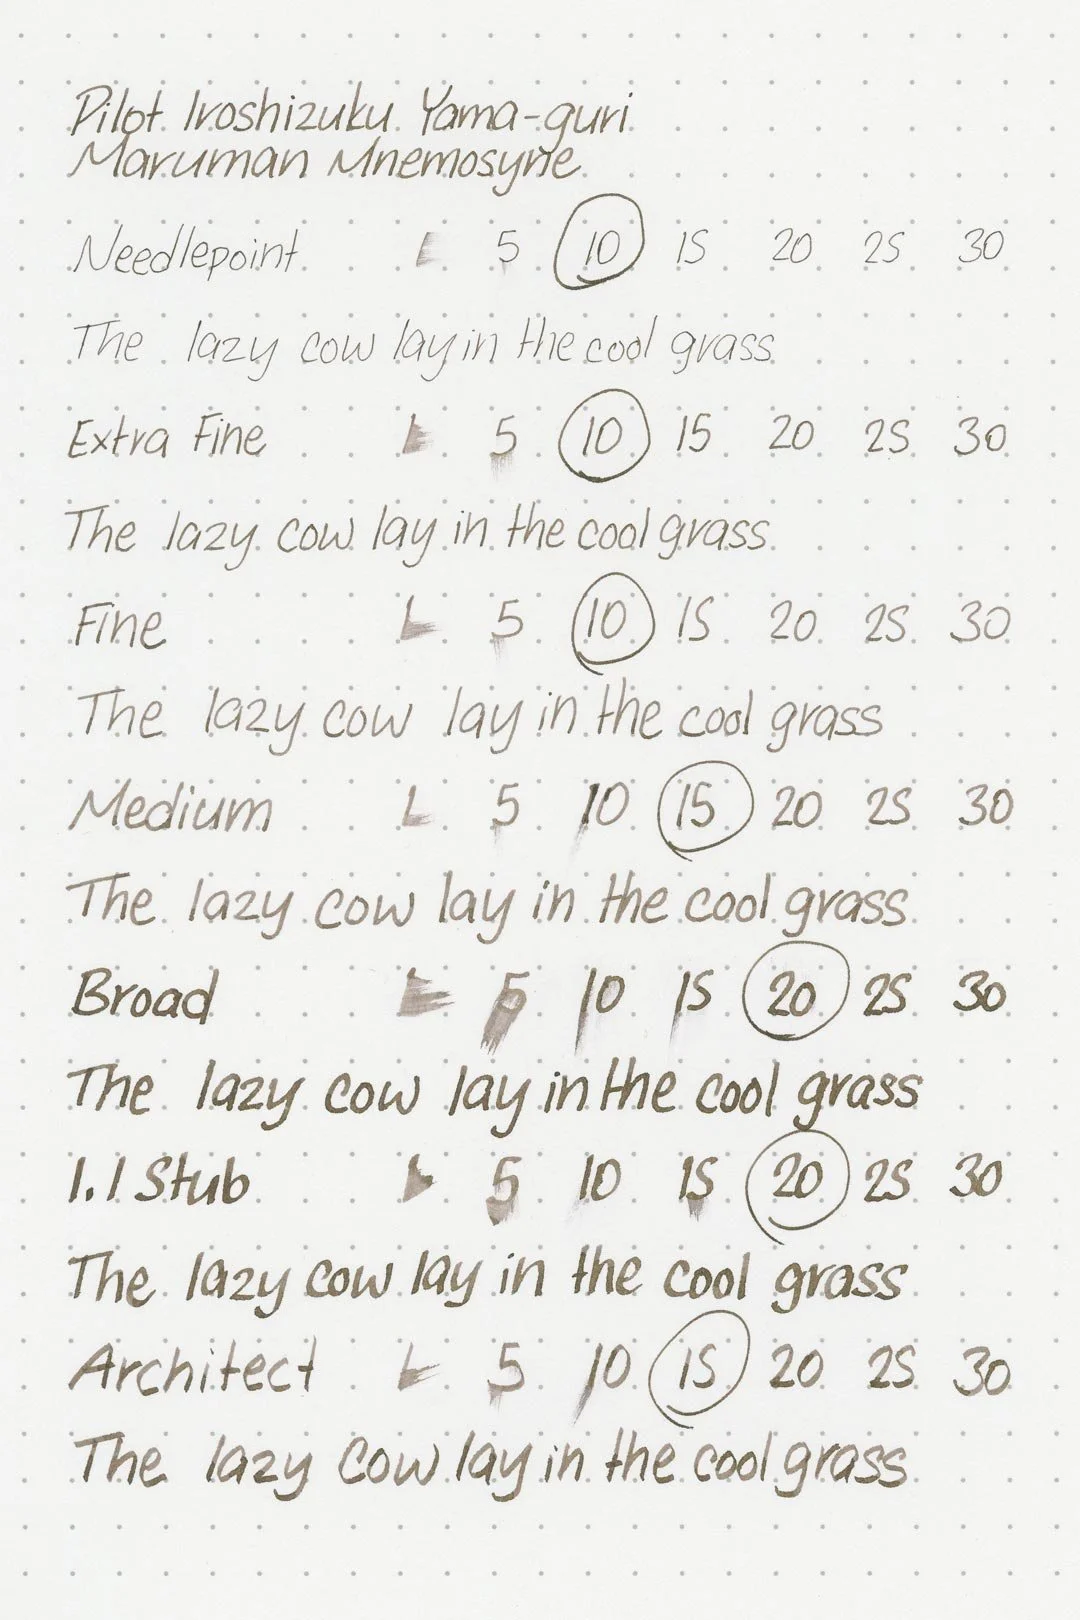 Pilot Iroshizuku Yama-guri
Maruman Mnemosyne
Needlepoint L 5 10 15 20 25 30
The lazy cow lay in the cool grass
Extra Fine L 5 10 15 20 25 30
The lazy cow lay in the cool grass
Fine L 5 10 15 20 25 30
The lazy cow lay in the cool grass
Medium L 5 10 15 20 25 30
The lazy cow lay in the cool grass
Broad L 5 10 15 20 25 30
The lazy cow lay in the cool grass
1.1 Stub L 5 10 15 20 25 30
The lazy cow lay in the cool grass
Architect L 5 10 15 20 25 30
The lazy cow lay in the cool grass